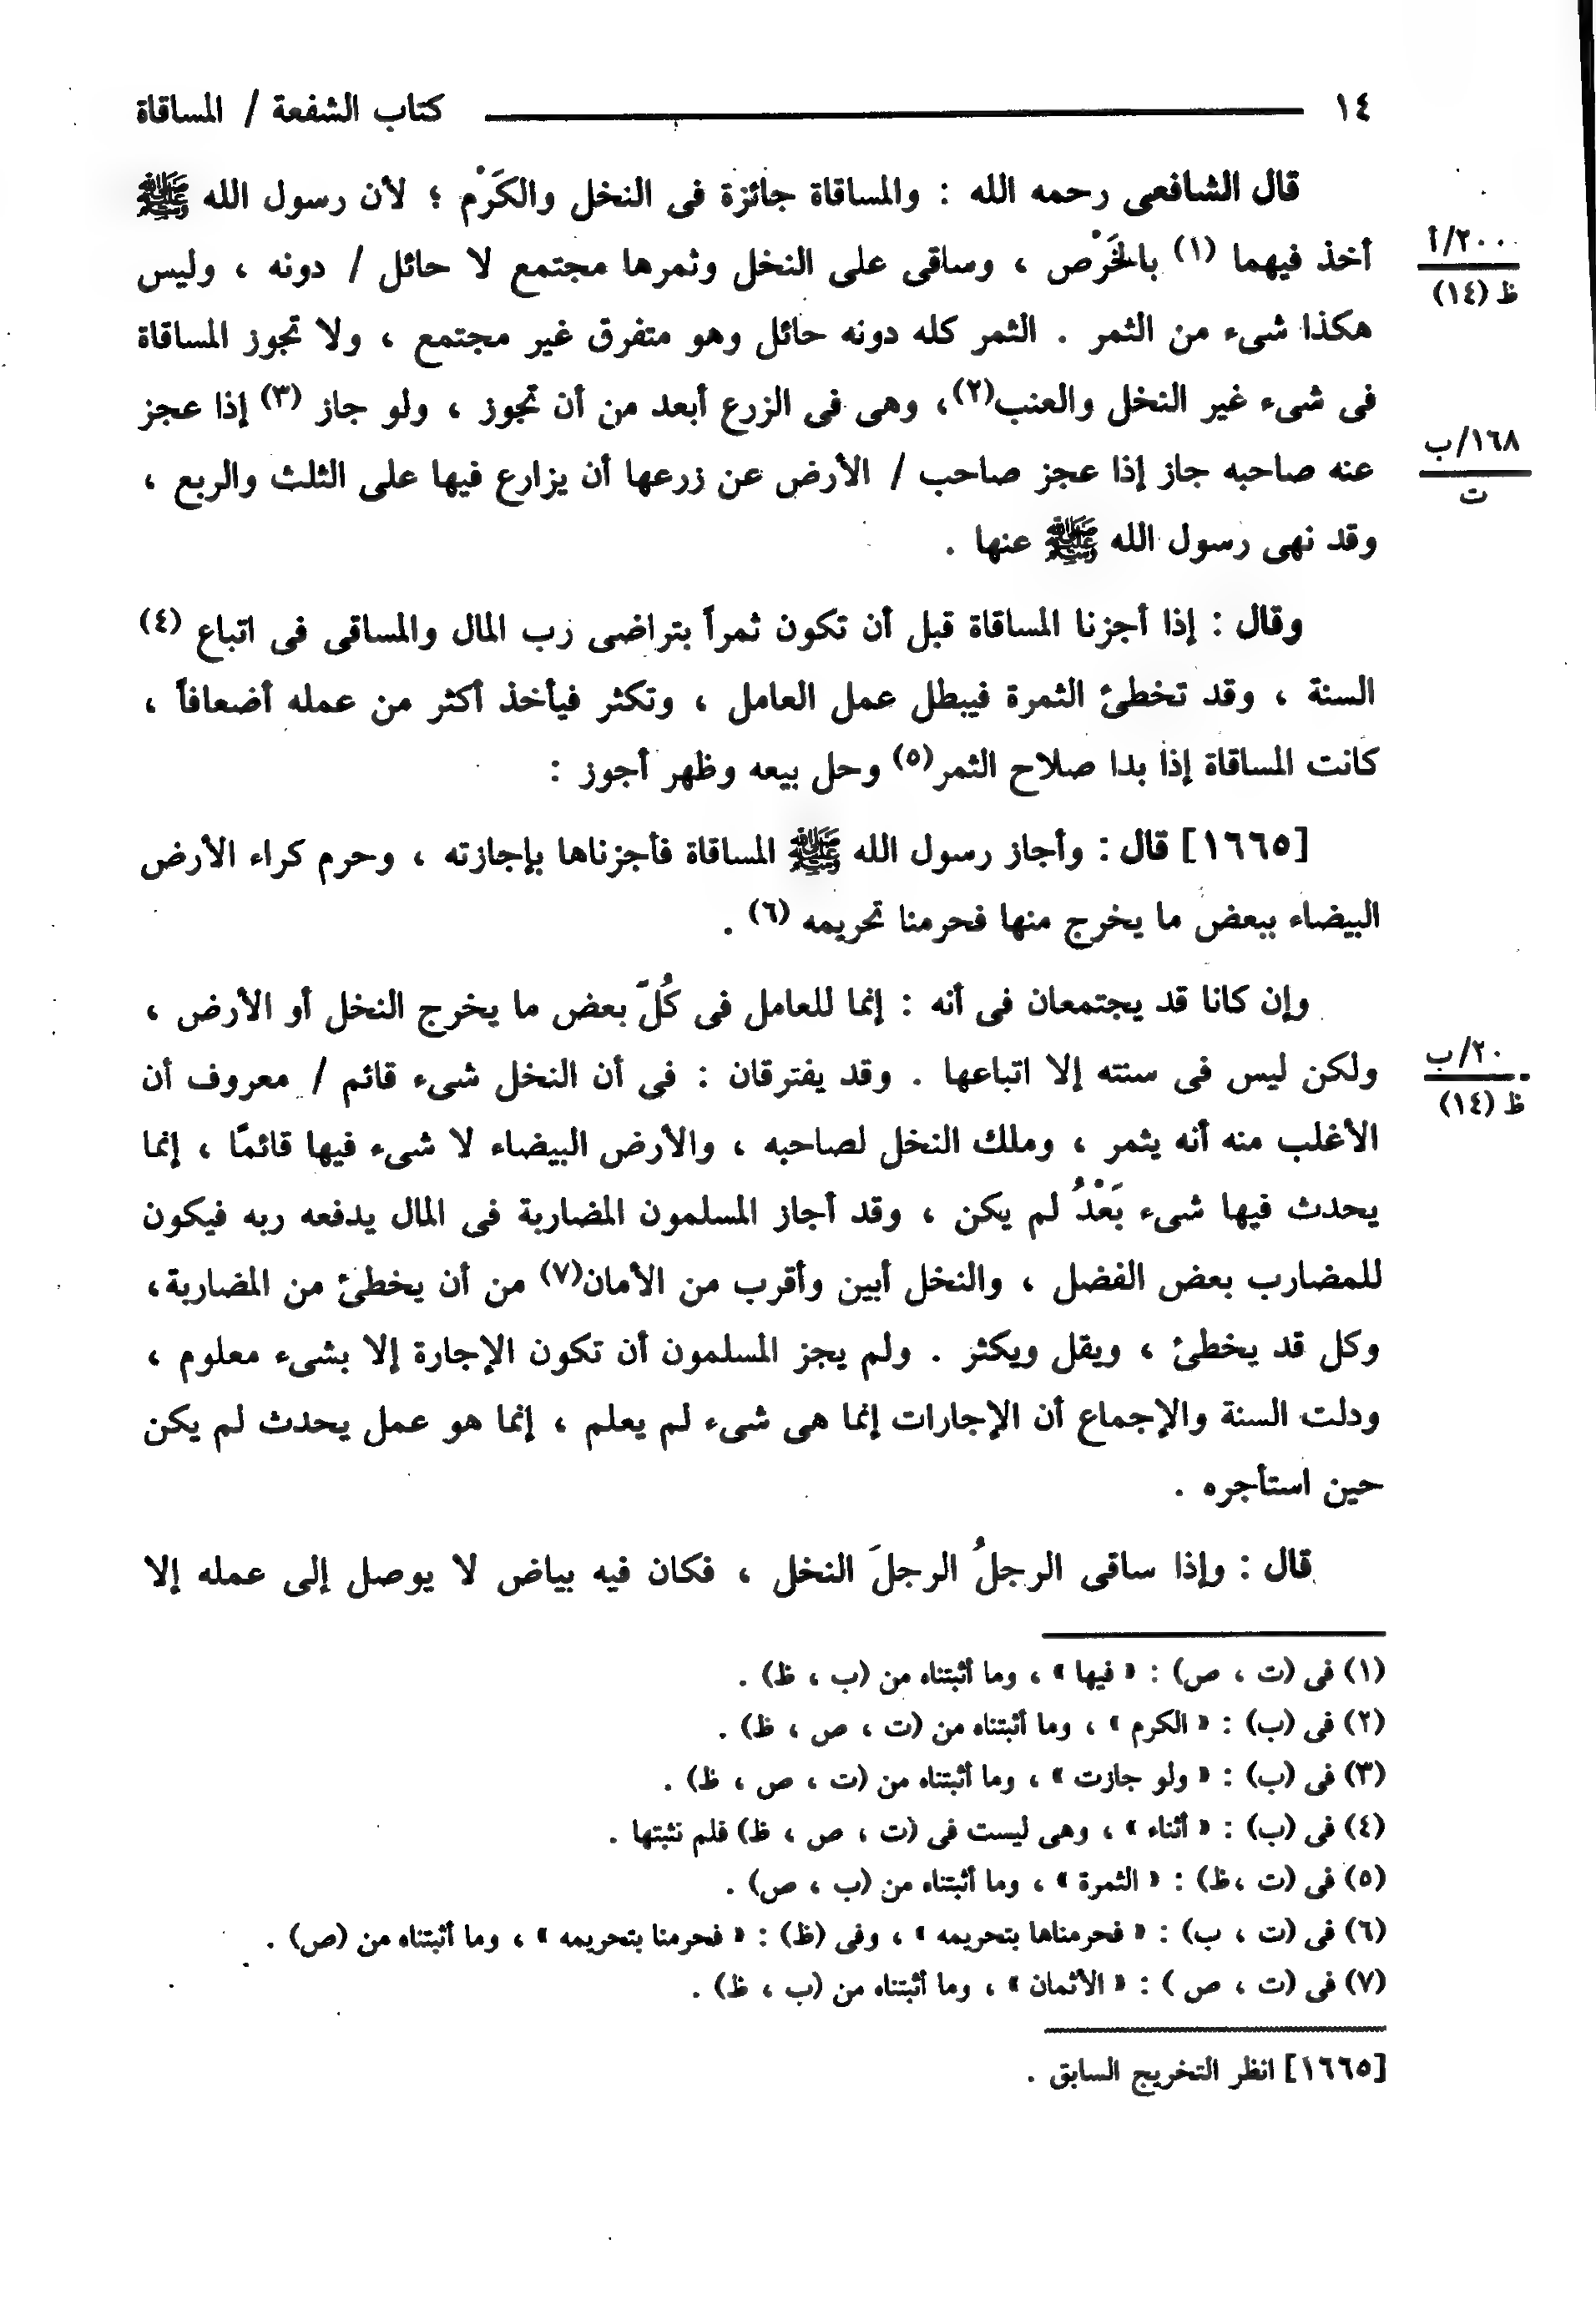 ١٤ كتاب الشفعة / المساقاة
قال الشافعى رحمه الله : والمساقاة جائزة فى النخل والكَرْم ؛ لأن رسول الله ﷺ
أخذ فيهما (١) بالخَرْص ، وساقى على النخل وثمرها مجتمع لا حائل / دونه ، وليس
٢٠٠/أ
ظ (١٤)
هكذا شىء من الثمر . الثمر كله دونه حائل وهو متفرق غير مجتمع ، ولا تجوز المساقاة
فى شىء غير النخل والعنب(٢)، وهى فى الزرع أبعد من أن تجوز ، ولو جاز (٣) إذا عجز
عنه صاحبه جاز إذا عجز صاحب / الأرض عن زرعها أن يزارع فيها على الثلث والربع ،
١٦٨/ب
ت
وقد نهى رسول الله ﷺ عنها .
وقال : إذا أجزنا المساقاة قبل أن تكون ثمراً بتراضى رب المال والمساقى فى اتباع (٤)
السنة ، وقد تخطئ الثمرة فيبطل عمل العامل ، وتكثر فيأخذ أكثر من عمله أضعافاً ،
كانت المساقاة إذا بدا صلاح الثمر(٥) وحل بيعه وظهر أجوز :
[١٦٦٥] قال : وأجاز رسول الله ﷺ المساقاة فأجزناها بإجازته ، وحرم كراء الأرض
البيضاء ببعض ما يخرج منها فحرمنا تحريمه (٦) .
وإن كانا قد يجتمعان فى أنه : إنما للعامل فى كُلّ بعض ما يخرج النخل أو الأرض ،
ولكن ليس فى سنته إلا اتباعها . وقد يفترقان : فى أن النخل شىء قائم / معروف أن
٢٠٠/ب
ظ (١٤)
الأغلب منه أنه يثمر ، وملك النخل لصاحبه ، والأرض البيضاء لا شىء فيها قائمًا ، إنما
يحدث فيها شىء بَعْدُ لم يكن ، وقد أجاز المسلمون المضاربة فى المال يدفعه ربه فيكون
للمضارب بعض الفضل ، والنخل أبين وأقرب من الأمان(٧) من أن يخطئ من المضاربة،
وكل قد يخطئ ، ويقل ويكثر . ولم يجز المسلمون أن تكون الإجارة إلا بشىء معلوم ،
ودلت السنة والإجماع أن الإجارات إنما هى شىء لم يعلم ، إنما هو عمل يحدث لم يكن
حين استأجره .
قال : وإذا ساقى الرجلُ الرجلَ النخل ، فكان فيه بياض لا يوصل إلى عمله إلا
(١) فى (ت ، ص) : « فيها » ، وما أثبتناه من (ب ، ظ) .
(٢) فى (ب) : « الكرم » ، وما أثبتناه من (ت ، ص ، ظ) .
(٣) فى (ب) : « ولو جازت » ، وما أثبتناه من (ت ، ص ، ظ) .
(٤) فى (ب) : « أثناء » ، وهى ليست فى (ت ، ص ، ظ) فلم نثبتها .
(٥) فى (ت ،ظ) : « الثمرة » ، وما أثبتناه من (ب ، ص) .
(٦) فى (ت ، ب) : « فحرمناها بتحريمه » ، وفى (ظ) : « فحرمنا بتحريمه » ، وما أثبتناه من (ص) .
(٧) فى (ت ، ص ) : « الأثمان » ، وما أثبتناه من (ب ، ظ) .
[١٦٦٥] انظر التخريج السابق .